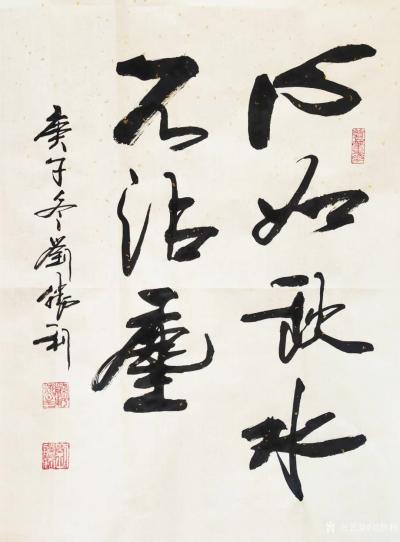 心如秋水
不沾塵
庚子冬劉勝利